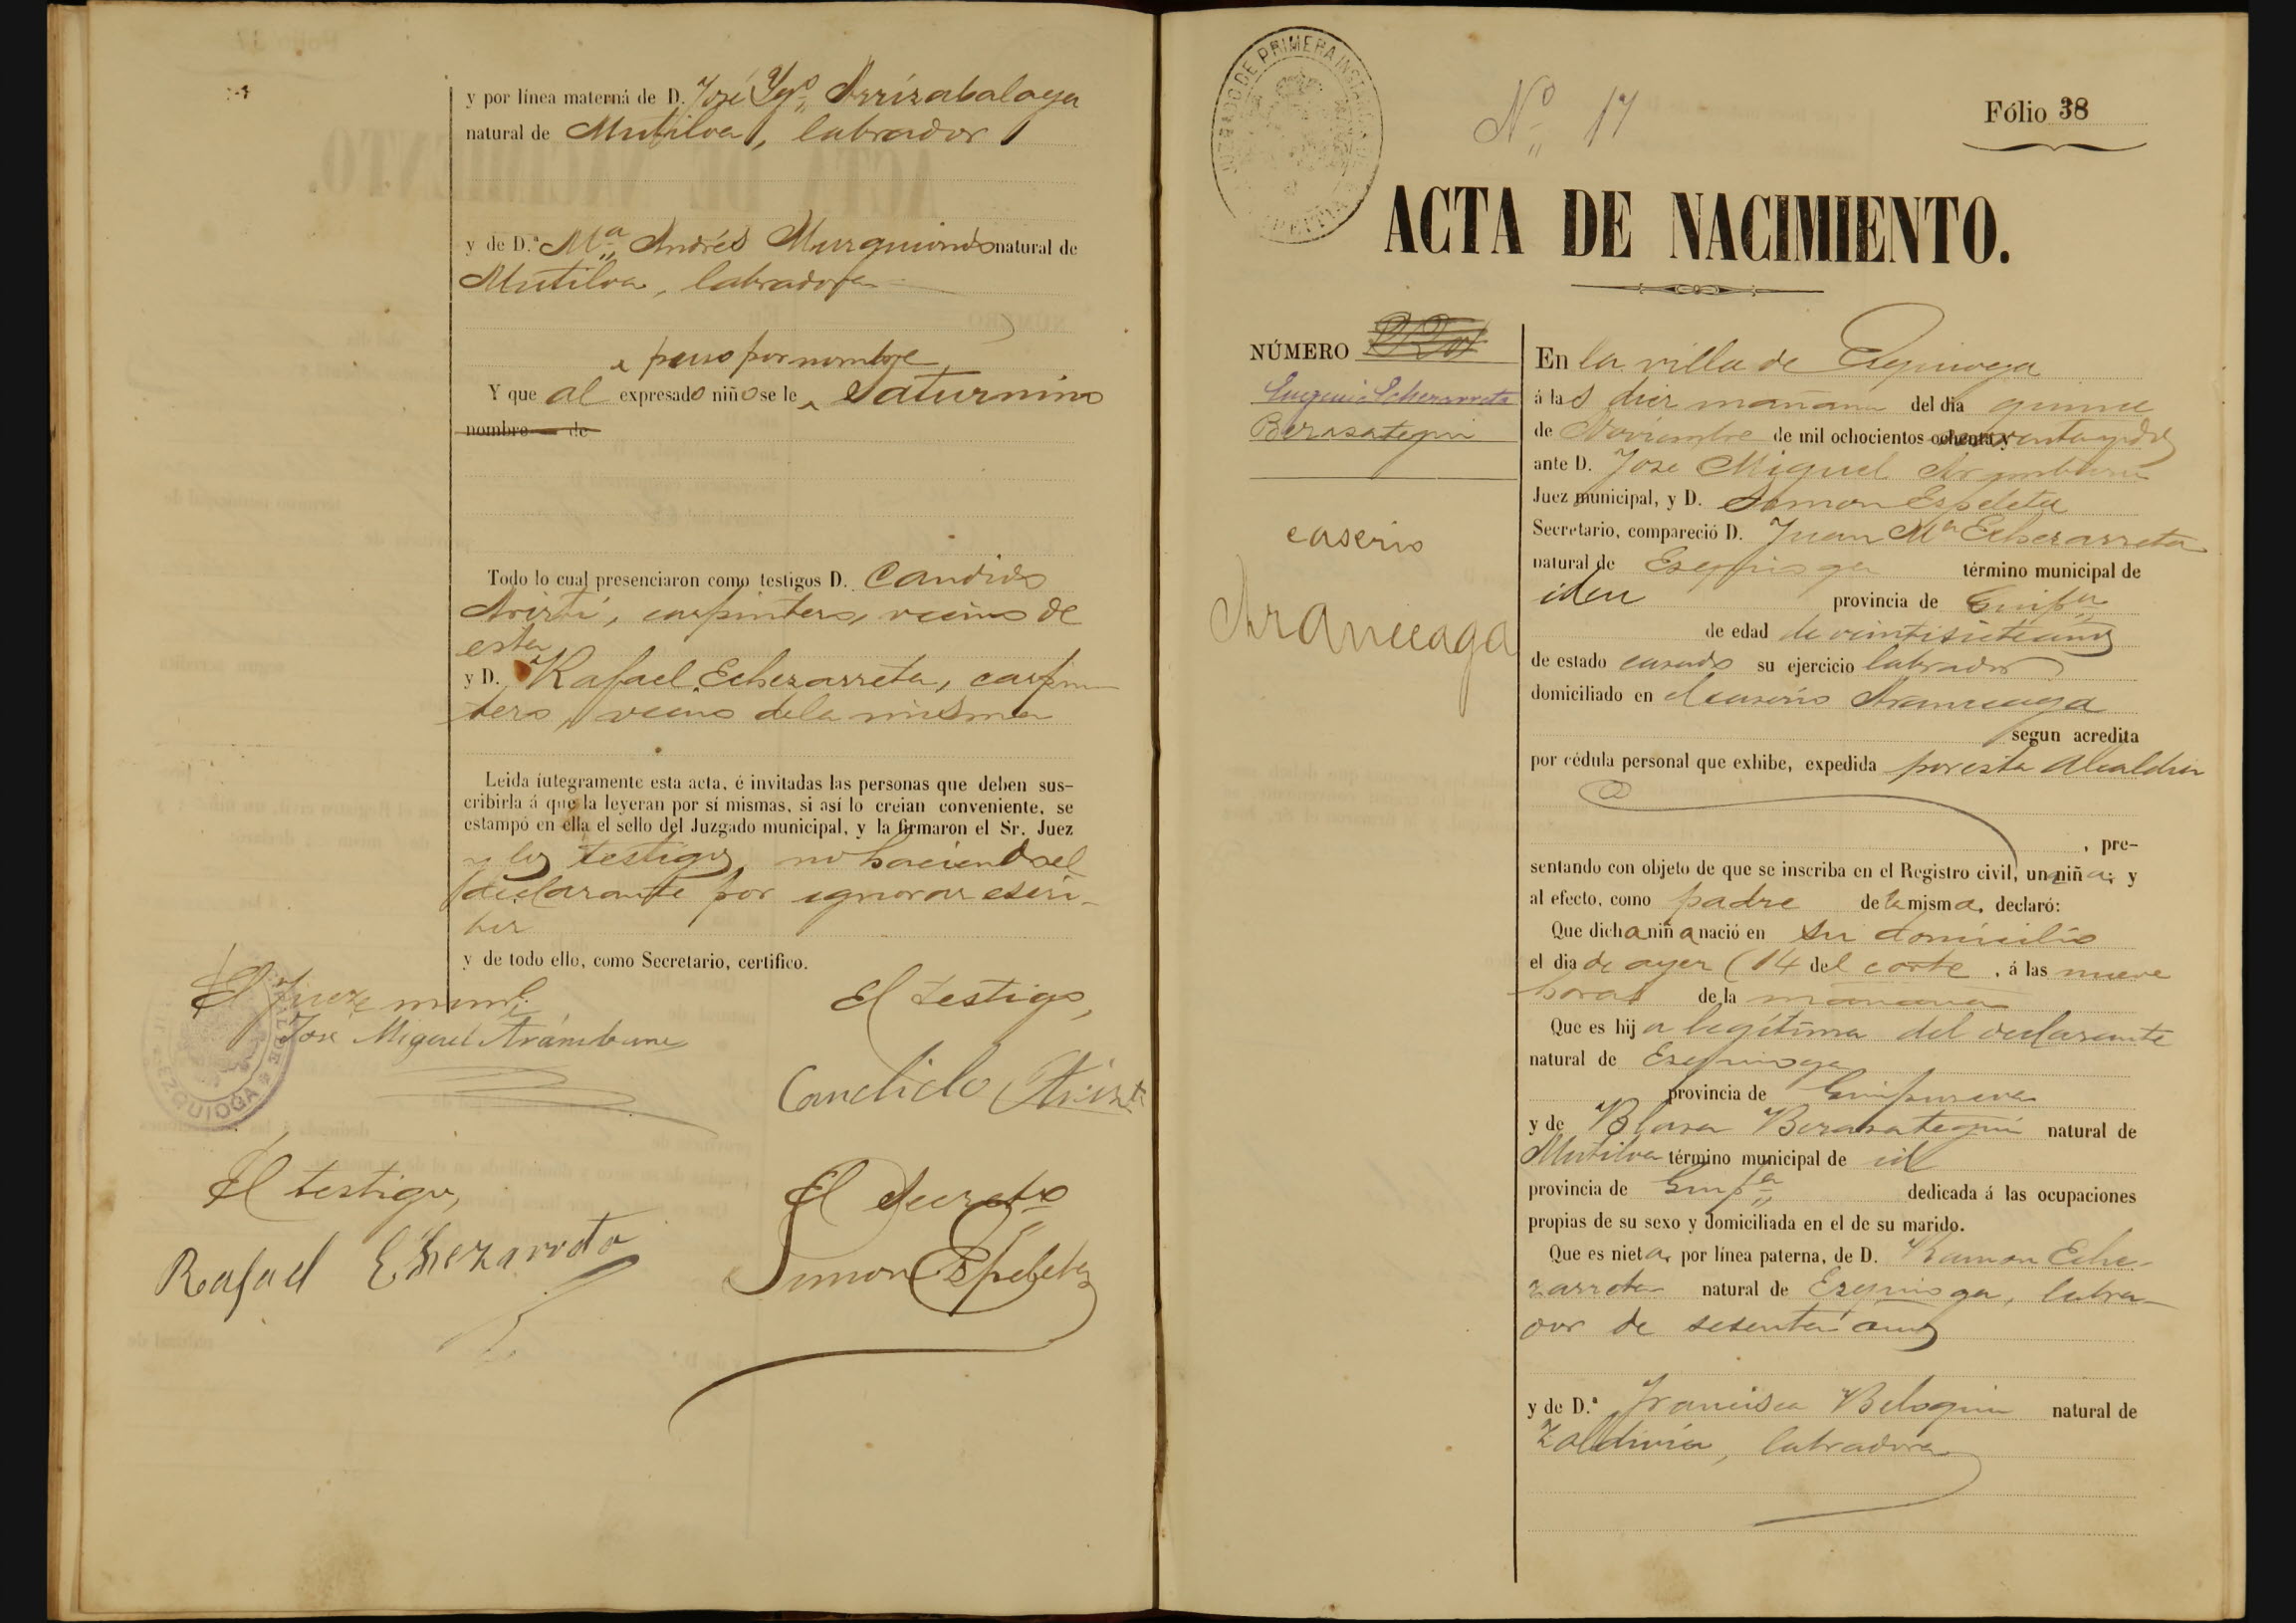 y por línea materna de D. José Ygº Arrizabalaga
natural de Mutiloa, labrador
y de D.ª Mª Andrés Murguiondo natural de
Mutiloa, labradora
se puso por nombre
Y que al expresado niño se le Saturnino
nombre de
Todo lo cual presenciaron como testigos D. Candido
Aristi, carpintero, vecino de
esta
y D. Rafael Echezarreta, carpin-
tero, vecino de la misma
Leida íntegramente esta acta, é invitadas las personas que deben sus-
cribirla á que la leyeran por sí mismas, si así lo creian conveniente, se
estampó en ella el sello del Juzgado municipal, y la firmaron el Sr. Juez
y los testigos, no haciendo el
declarante por ignorar escri-
bir
y de todo ello, como Secretario, certifico.
El Juez munl
José Miguel Arámburu
EZQUIOGA
El testigo,
Candido Aristi
El testigo,
Rafael Echezarreta
El Secretº
Simon Espeleta
JUZGADO DE PRIMERA INSTANCIA
AZPEITIA
Nº 17
Fólio 38
ACTA DE NACIMIENTO.
NÚMERO
Eugenia Echezarreta
Berasategui
caserio
Aranceaga
En la villa de Ezquioga
á las diez mañana del dia quince
de Noviembre de mil ochocientos ochenta y noventa y dos
ante D. Jose Miguel Aramburu
Juez municipal, y D. Simon Espeleta
Secretario, compareció D. Juan Mª Echezarreta
natural de Ezquioga término municipal de
idem provincia de Guipª
de edad de veintisiete años
de estado casado su ejercicio labrador
domiciliado en el caserio Aranceaga
segun acredita
por cédula personal que exhibe, expedida por esta Alcaldia
, pre-
sentando con objeto de que se inscriba en el Registro civil, una niña; y
al efecto, como padre de la misma, declaró:
Que dicha niña nació en su domicilio
el dia de ayer (14 del corte, á las nueve
horas de la mañana
Que es hija legítima del declarante
natural de Ezquioga
provincia de Guipuzcoa
y de Blasa Berasategui natural de
Mutiloa término municipal de id
provincia de Guipª dedicada á las ocupaciones
propias de su sexo y domiciliada en el de su marido.
Que es nieta, por línea paterna, de D. Ramon Eche-
zarreta natural de Ezquioga, labra-
dor de sesenta años
y de D.ª Francisca Beloqui natural de
Zaldivia, labradora